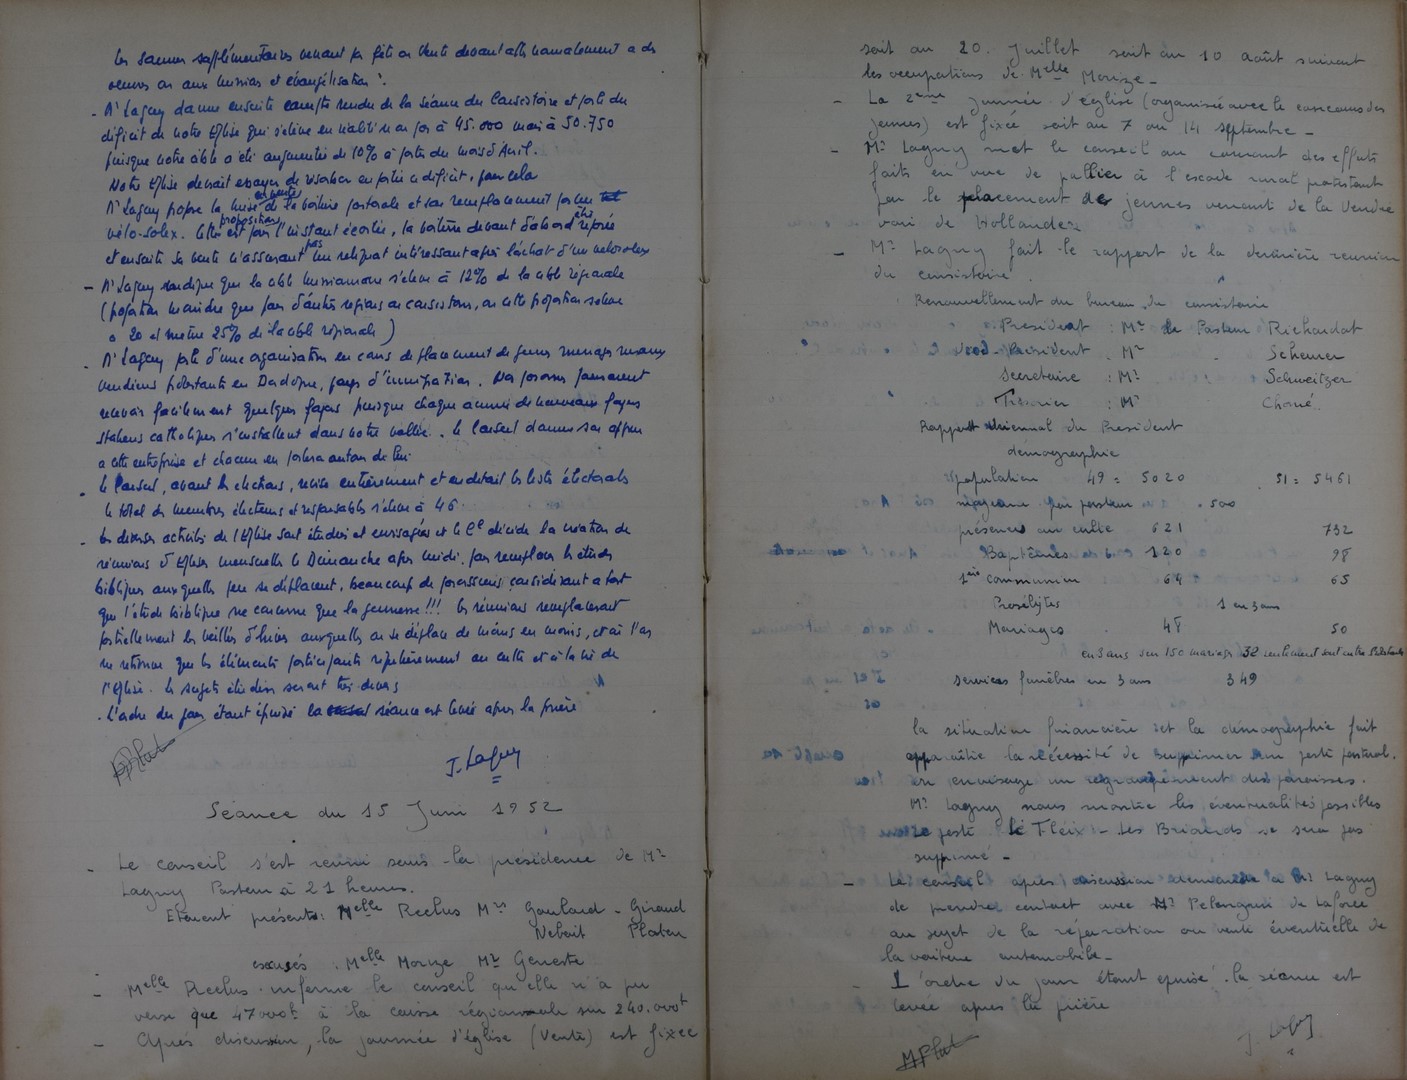 les sommes supplémentaires venant par fête ou vente devant aller normalement a des
œuvres ou aux missions et évangélisation !
- Mr Lagny donne ensuite compte rendu de la séance du Consistoire et parle du
déficit de notre Eglise qui s'élève en réalité non pas à 45.000 mais à 50.750
puisque notre cible a été augmentée de 10% à partir du mois d'Avril.
Notre Eglise devrait essayer de résorber en partie ce déficit, pour cela
Mr Lagny propose la mise en vente de la voiture pastorale et son remplacement par un
vélo-solex. Cette proposition est pour l'instant écartée, la voiture devant d'abord être réparée
et ensuite sa vente n'assurant pas un reliquat intéressant après l'achat d'un velosolex
- Mr Lagny indique que la cible missionnaire s'élève à 12% de la cible régionale
(proportion moindre que pour d'autres régions ou consistoires, ou cette proportion s'élève
a 20 et même 25% de la cible régionale)
. Mr Lagny parle d'une organisation en cours de placement de jeunes menages ruraux
vendéens protestants en Dordogne, pays d'immigration. Nos paroisses pourraient
recevoir facilement quelques foyers puisque chaque année de nouveaux foyers
italiens catholiques s'installent dans notre vallée. le Conseil donne son appui
a cette entreprise et chacun en parlera autour de lui.
. le Conseil, avant les élections, révise entièrement et en detail les listes électorales
le total des membres électeurs et responsables s'élève à 46.
. les diverses activités de l'Eglise sont étudiées et envisagées et le Cl décide la création de
réunions d'Eglise mensuelles le Dimanche après midi, pour remplacer les études
bibliques auxquelles peu se déplacent, beaucoup de paroissiens considérant a tort
que l'étude biblique ne concerne que la jeunesse !!! les réunions remplaceront
partiellement les veillées d'hiver auxquelles on se déplace de moins en moins, et où l'on
ne retrouve que les éléments participants régulièrement au culte et à la vie de
l'Eglise. les sujets étudiés seront très divers
. L'ordre du jour étant épuisé la séance est levée après la prière
J. Lagny
Séance du 15 Juin 1952
- Le conseil s'est reuni sous la présidence de Mr
Lagny Pasteur à 21 heures.
Etaient présents: Melle Reclus Mrs Goulard - Giraud
Nebout Platon
excusés . Melle Morize Mr Geneste
- Melle Reclus informe le conseil qu'elle n'a pu
verse que 47000f à la caisse régionale sur 240.000f
- Après discussion, la journée d'église (Vente) est fixée
soit au 20. Juillet soit au 10 août suivant
les occupations de Melle Morize -
- La 2ème journée d'église (organisée avec le concours des
jeunes) est fixée soit au 7 ou 14 septembre -
- Mr Lagny met le conseil au courant des efforts
faits en vue de pallier à l'exode rural protestant
par le placement de jeunes venant de la Vendée
voir de Hollande
- Mr Lagny fait le rapport de la dernière reunion
du consistoire
Renouvellement du bureau du consistoire
President : Mr le Pasteur Richardot
Vice-Président . Mr Schemer
Secretaire : Mr Schweitzer
Trésorier : Mr
Rapport triennal du President
démographie
population 49 = 5020 . 51 = 5461
moyenne par pasteur . 500
présences au culte 621 732
Baptêmes 120 98
1ère communion 64 65
Prosélytes 1 en 3 ans
Mariages . 48 50
en 3 ans sur 150 mariages 32 seulement sont entre Protestants
services funèbres en 3 ans 349
la situation financière et la démographie fait
apparaître la nécessité de supprimer un poste pastoral.
on envisage un regroupement des paroisses.
Mr Lagny nous montre les éventualités possibles
poste le Fleix - les Briands ne sera pas
supprimé -
- Le conseil après discussion demande à Mr Lagny
de prendre contact avec Mr Pelongeau de Laforce
au sujet de la réparation ou vente éventuelle de
la voiture automobile -
- L'ordre du jour étant epuisé la séance est
levée après la prière
J. Lagny